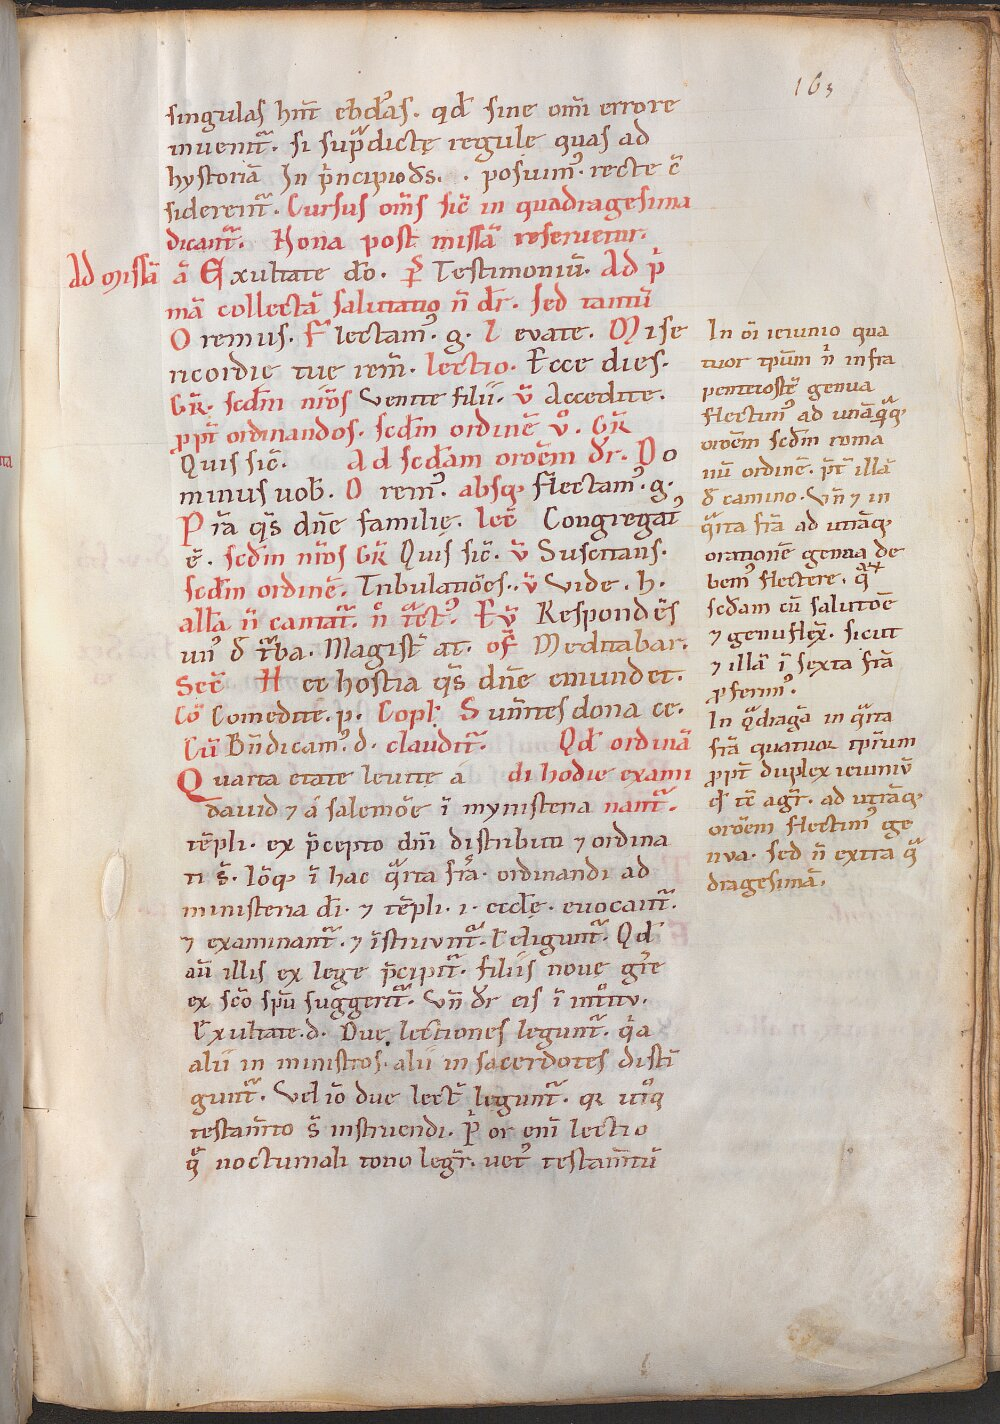 163
singulas hn̄t ebd̄as. qd̄ sine om̄i errore
inuenit᷑. si sup̄dictę regulę quas ad
hystoriā In p̄ncipio d̄s. . posuim᷒. recte c̄
siderent᷑. Cursus om̄s sic̄ in quadragesima
dicant᷑. Nona post missā reseruetur.
Ad missā ā Exultate dō. p̄s Testimoniū. Ad p̄
mā collectā salutatio n̄ dr̄. sed tantū
Oremus. Flectam᷒. g. Leuate. Mise
ricordię tuę rem̄. lectio. Ecce dies.
Gr̄. scd̄m nr̄os Venite filii. v̄ Accedite.
ꝓpt̄ ordinandos. scd̄m ordinē v̄o. Gr̄
Quis sic̄. Ad scd̄am orōem dr̄. Do
minus uob̄. Orem᷒. absq᷒ flectam᷒. g.
Pr̄a q̄s dn̄e familię. lec̄t Congregat᷒
ē. scd̄m nr̄os Gr̄ Quis sic̄. v̄ Suscitans.
scd̄m ordinē. Tribulatiōes. v̄ Vide. h.
all̄a n̄ cantat᷑. n̄ t̄ct᷒. Ev̄ Respondēs
un᷒ d̄ t᷑ba. Magist̄ at̄. of̄ Meditabar.
Secr̄ Hec hostia q̄s dn̄e emundet.
Cō Comedite. p. Copl̄. Sum̄tes dona cę.
Cū Bn̄dicam᷒. d. claudit᷑. Qd̄ ordinā
Quarta etate leuitę a di hodie exami
dauid ⁊ a salemōe ī mynisteria nant᷑.
tēpli. ex p̄cepto dn̄i distributi ⁊ ordina
ti s̄. Iōq᷒ ī hac q̄rta fr̄a. ordinandi ad
ministeria dī. ⁊ tēpli. i. eccłę. euocant᷑.
⁊ examinant᷑. ⁊ īstruunt᷑. ⁊ eligunt᷑. Qd̄
aū illis ex lege p̄cipit᷑. filiis nouę gr̄ę
ex sc̄o sp̄u suggerit᷑. Vn̄ dr̄ eis ī introitu.
Exultate. d. Duę lectiones legunt᷑. q̄a
alii in ministros. alii in sacerdotes disti
gunt᷑. Vel iō duę lect̄ legunt᷑. qr utiq᷒
testam̄to s̄ instruendi. P̄or om̄i lectio
q̄ nocturnali tono legr̄. uet᷒ testam̄tū
In ōi ieiunio qua
tuor tp̄um n̄ infra
pentecostē genua
flectim᷒ ad unāq̄q᷒
orōem scd̄m roma
nū ordinē. p̄t illā
d̄ camino. Vn̄ ⁊ in
q̄rta fr̄a ad utrāq᷒
orationē genua de
bem᷒ flectere. q̄
scd̄am cū salutōe
⁊ genuflex̄. sicut
⁊ illā ī sexta fr̄a
ꝓferim᷒.
In q̄draḡa in q̄rta
fr̄a quatuor tp̄rum
ꝓpt̄ duplex ieiuniū
qd̄ tc̄ agr̄. ad utrāq᷒
orōem flectim᷒ ge
nua. Sed n̄ extra q̄
dragesimā.